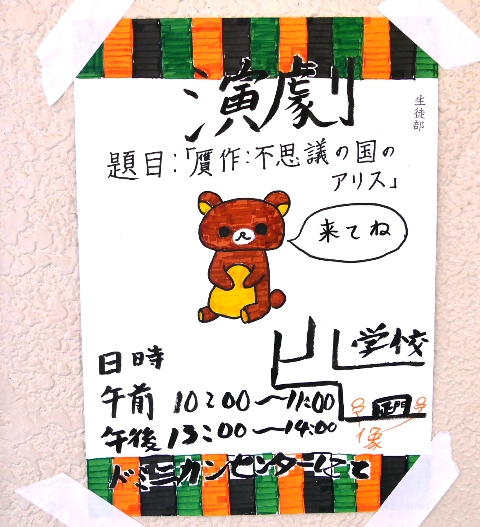 生徒部
演劇
題目:「贋作:不思議の国の
アリス」
来てね
学校
正門
像
日時
午前 10:00〜11:00
午後 13:00〜14:00
ドミニカンセンターにて